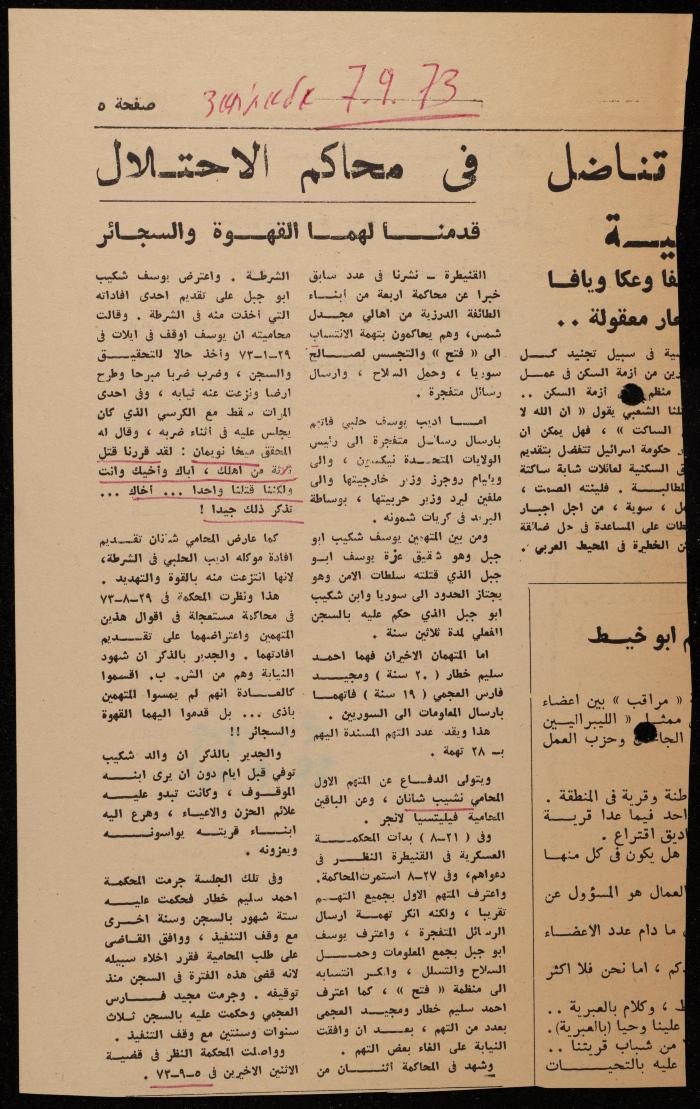 صفحة ٥
אלאתיחאד 7.9.73
فى محاكم الاحتلال
قدمنا لهما القهوة والسجائر
القنيطرة ـ نشرنا في عدد سابق
خبرا عن محاكمة اربعة من أبناء
الطائفة الدرزية من اهالي مجدل
شمس، وهم يحاكمون بتهمة الانتساب
الى « فتح » والتجسس لصالح
سوريا ، وحمل السلاح ، وارسال
رسائل متفجرة .
اما اديب يوسف حلبي فاتهم
بارسال رسائل متفجرة الى رئيس
الولايات المتحدة نيكسون ، والى
ويليام روجرز وزير خارجيتها والى
ملفين ليرد وزير حربيتها ، بوساطة
البريد في كريات شمونه .
ومن بين المتهمين يوسف شكيب ابو
جبل وهو شقيق عزة يوسف ابو
جبل الذي قتلته سلطات الامن وهو
يجتاز الحدود الى سوريا وابن شكيب
ابو جبل االذي حكم عليه بالسجن
الفعلي لمدة ثلاثين سنة .
اما المتهمان الاخيران فهما احمد
سليم خطار ( ٢٠ سنة ) ومجيد
فارس العجمي ( ١٩ سنة ) فاتهما
بارسال المعلومات الى السوريين .
هذا ويقدر عدد التهم المسندة اليهم
بـ ٢٨ تهمة .
ويتولى الدفاع عن المتهم الاول
المحامي نشيب شانان ، وعن الباقين
المحامية فيليتسيا لانجر .
وفي ( ٢١-٨ ) بدأت المحكمة
العسكرية في القنيطرة النظر في
دعواهم، وفي ٢٧-٨ استمرت المحاكمة.
واعترف المتهم الاول بجميع التهم
تقريبا ، ولكنه انكر تهمة ارسال
الرسائل المتفجرة ، واعترف يوسف
ابو جبل بجمع المعلومات وحمل
السلاح والتسلل ، وانكر انتسابه
الى منظمة « فتح » ، كما اعترف
احمد سليم خطار ومجيد العجمي
بعدد من التهم ، بعد ان وافقت
النيابة على الغاء بعض التهم .
وشهد في المحاكمة أثنان من
الشرطة . واعترض يوسف شكيب
ابو جبل على تقديم احدى افاداته
التي أخذت منه في الشرطة . وقالت
محاميته ان يوسف اوقف في ايلات في
٢٩-١-٧٣ وأخذ حالا للتحقيق
والسجن ، وضرب ضربا مبرحا وطرح
ارضا ونزعت عنه ثيابه ، وفي احدى
المرات سقط مع الكرسي الذي كان
يجلس عليه في أثناء ضربه ، وقال له
المحقق ميخا نويمان : لقد قررنا قتل
ثلاثة من أهلك ، أباك وأخيك وأنت
ولكننا قتلنا واحدا ... أخاك ...
تذكر ذلك جيدا !
كما عارض المحامي شانان تقديم
افادة موكله اديب الحلبي في الشرطة،
لانها انتزعت منه بالقوة والتهديد .
هذا ونظرت المحكمة في ٢٩-٨-٧٣
في محاكمة مستعجلة في اقوال هذين
المتهمين واعتراضهما على تقديم
افادتهما . والجدير بالذكر ان شهود
النيابة وهم من الش. ب. اقسموا
كالعادة انهم لم يمسوا المتهمين
بأذى ... بل قدموا اليهما القهوة
والسجائر !!
والجدير بالذكر ان والد شكيب
توفي قبل ايام دون ان يرى ابنه
الموقوف ، وكانت تبدو عليه
علائم الحزن والاعياء ، وهرع اليه
ابناء قريته يواسونه
ويعزونه .
وفي تلك الجلسة جرمت المحكمة
احمد سليم خطار فحكمت عليه
ستة شهور بالسجن وسنة اخرى
مع وقف التنفيذ ، ووافق القاضى
على طلب المحامية فقرر اخلاء سبيله
لانه قضى هذه الفترة في السجن منذ
توقيفه . وجرمت مجيد فارس
العجمي وحكمت عليه بالسجن ثلاث
سنوات وسنتين مع وقف التنفيذ .
وواصلت المحكمة النظر في قضية
الاثنين الاخيرين في ٥-٩-٧٣ .
تناضل
ية
فا وعكا ويافا
عار معقولة ..
سية في سبيل تجنيد كل
رين من أزمة السكن في عمل
منظم أزمة السكن ..
ثلنا الشعبي يقول « ان الله لا
الساكت » ، فهل يمكن ان
حكومة اسرائيل تتفضل بتقديم
ق السكنية لعائلات شابة ساكتة
لطالبة . فلينته الصمت ،
ل ، سوية ، من اجل اجبار
طات على المساعدة في حل ضائقة
ن الخطيرة في المحيط العربي .
م ابو خيط
« مراقب » بين اعضاء
ممثل « الليبراليين
وحزب العمل
طنة وقرية في المنطقة .
احد فيما عدا قرية
اديق اقتراع .
هل يكون في كل منها
العمال هو المسؤول عن
ما دام عدد الاعضاء
دكم ، اما نحن فلا اكثر
، وكلام بالعبرية ..
علينا وحيا (بالعبرية).
من شباب قريتنا ..
عليه بالتحيات